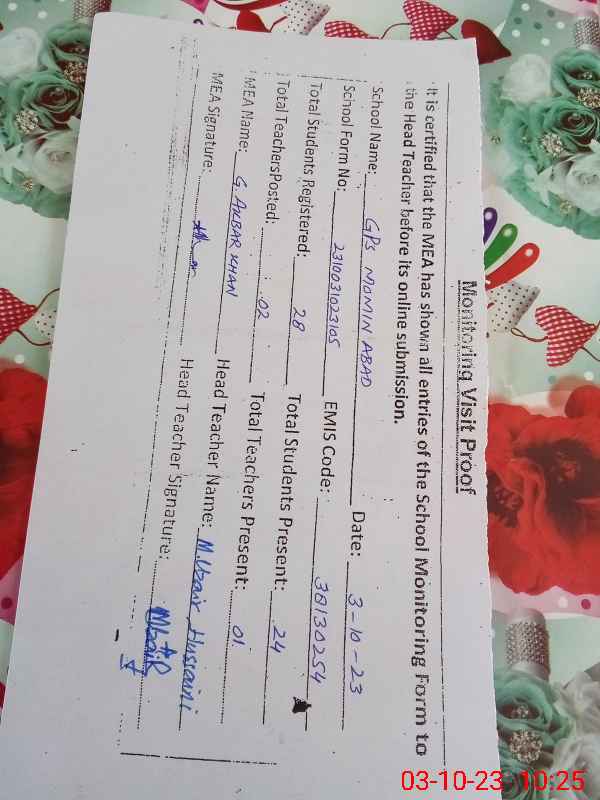 Monitoring Visit Proof
It is certified that the MEA has shown all entries of the School Monitoring Form to
the Head Teacher before its online submission.
School Name: GPS MOMIN ABAD Date: 3-10-23
School Form No: 2310031023105 EMIS Code: 38130254
Total Students Registered: 28 Total Students Present: 24
Total TeachersPosted: 02 Total Teachers Present: 01.
MEA Name: G. AKBAR KHAN Head Teacher Name: M. Uzair Hussaini
MEA Signature: Head Teacher Signature:
03-10-23 10:25